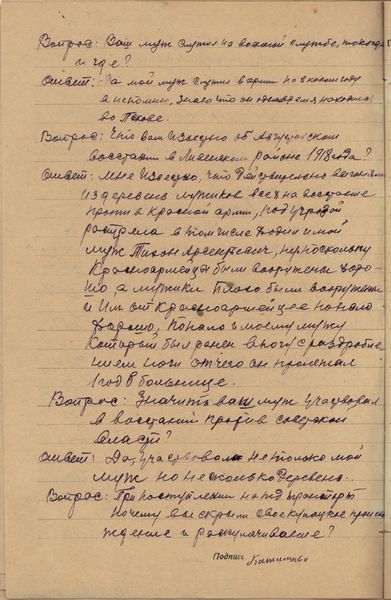 Вопрос: Ваш муж служил на военной службе, то когда
и где?
Ответ: Да мой муж служил в армии но в каком году
я не помню, знаю что он одно время находился
во Пскове.
Вопрос: Что вам известно об Августовском
восстании в Ливенском районе 1918 года?
Ответ: Мне известно, что действительно выгоняли
из деревень мужиков всех на восстание
против Красной армии, под угрозой
растрела в том числе ходил и мой
муж Тихон Арсентьевич, но поскольку
Красноармейцы были вооружены хоро-
шо, а мужики плохо были вооружены
и им от Красноармейцев попало
хорошо, попало и моему мужу
который был ранен в ногу с раздробле-
нием ноги от чего он пролежал
1 год в больнице.
Вопрос: Значить ваш муж участвовал
в восстании против советской
власти?
Ответ: Да, участвовал не только мой
муж но несколько деревень.
Вопрос: При поступлении на
почему вы скрыли свое кулацкое происхо-
ждение и раскулачивание?
Подпись